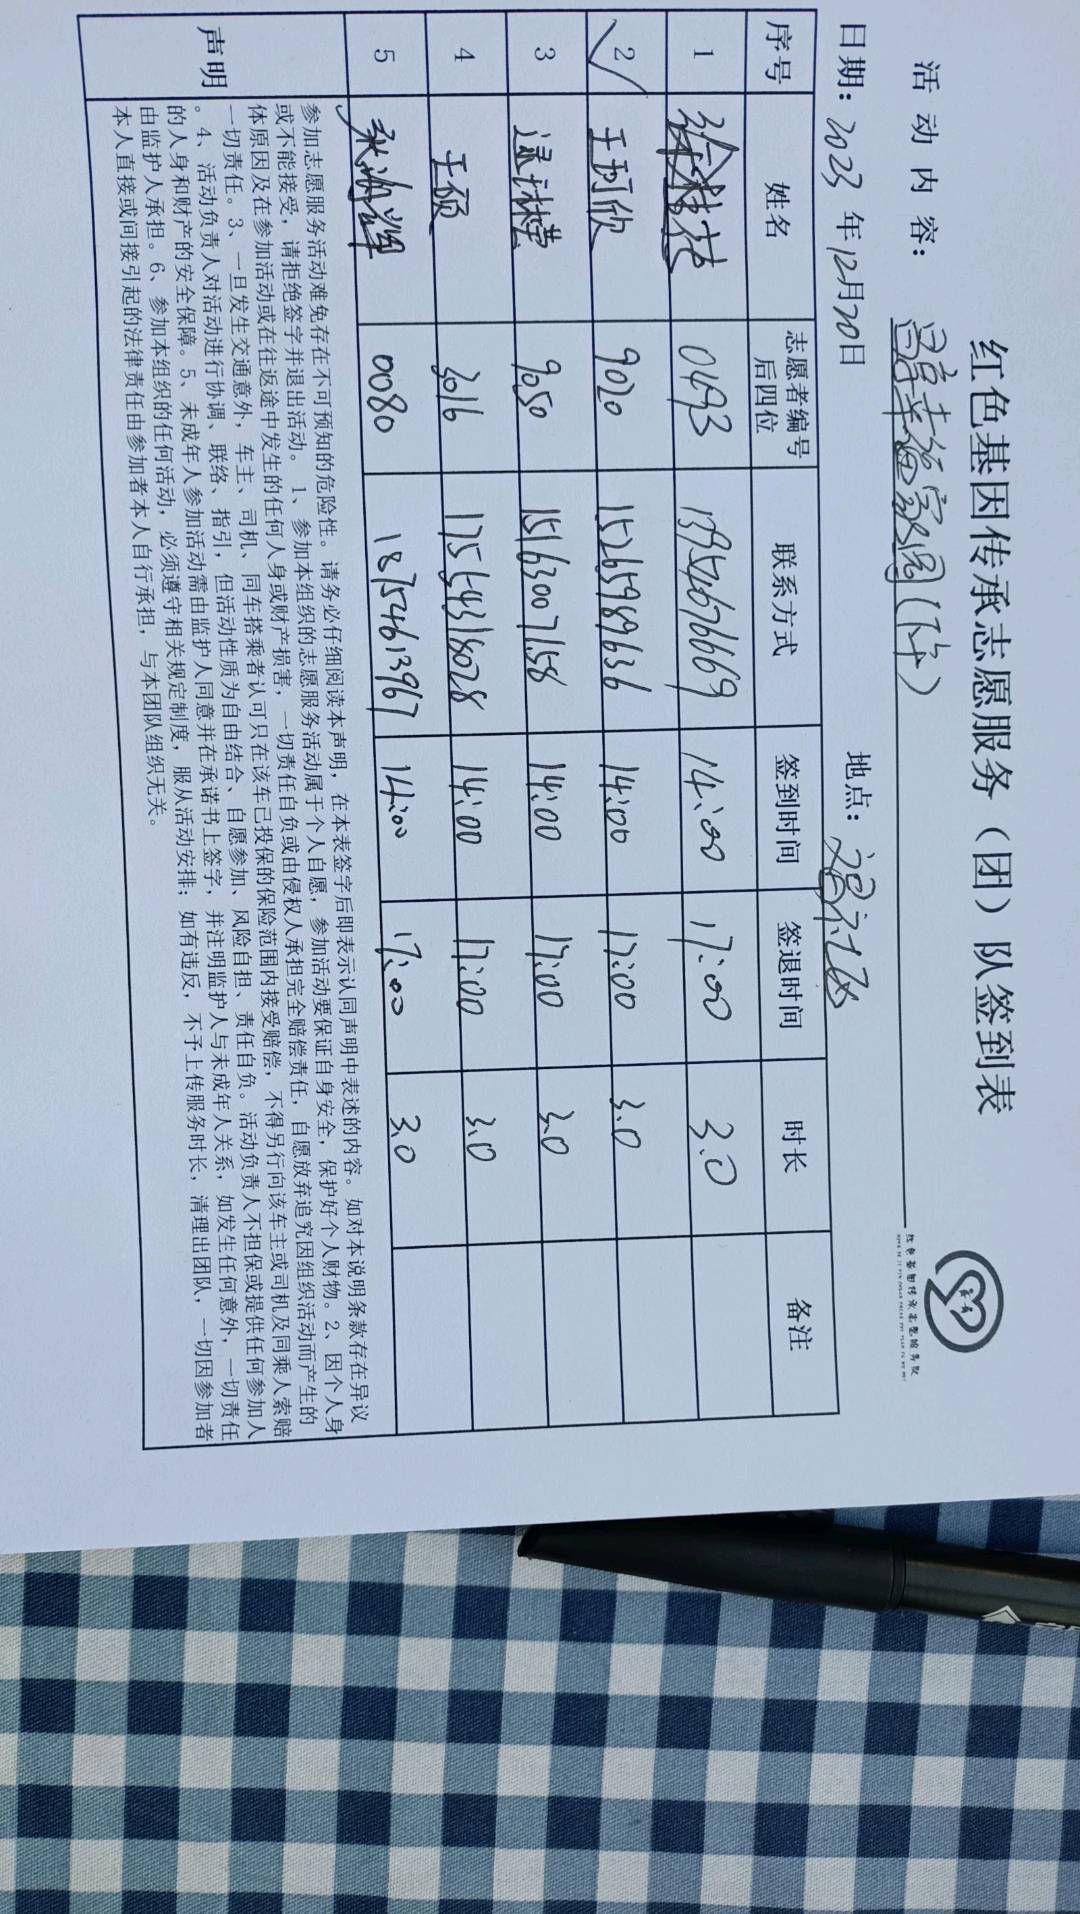 红色基因传承志愿服务（团）队签到表
活动内容：
日期：2023年12月20日 地点：
序号 姓名 志愿者编号后四位 联系方式 签到时间 签退时间 时长 备注
1 0493 13952676669 14:00 17:00 3.0
2 王珂欣 9020 15265989636 14:00 17:00 3.0
3 9050 15163007158 14:00 17:00 3.0
4 王硕 3016 17564318028 14:00 17:00 3.0
5 0080 18754613967 14:00 17:00 3.0
声明
参加志愿服务活动难免存在不可预知的危险性。请务必仔细阅读本声明，在本表签字后即表示认同声明中表述的内容。如对本说明条款存在异议
或不能接受，请拒绝签字并退出活动。1、参加本组织的志愿服务活动属于个人自愿，参加活动要保证自身安全，保护好个人财物。2、因个人身
体原因及在参加活动或在往返途中发生的任何人身或财产损害，一切责任自负或由侵权人承担完全赔偿责任，自愿放弃追究因组织活动而产生的
一切责任。3、一旦发生交通意外，车主、司机、同车搭乘者认可只在该车已投保的保险范围内接受赔偿，不得另行向该车主或司机及同乘人索赔
。4、活动负责人对活动进行协调、联络、指引，但活动性质为自由结合、自愿参加、风险自担、责任自负。活动负责人不担保或提供任何参加人
的人身和财产的安全保障。5、未成年人参加活动需由监护人同意并在承诺书上签字，并注明监护人与未成年人关系，如发生任何意外，一切责任
由监护人承担。6、参加本组织的任何活动，必须遵守相关规定制度，服从活动安排；如有违反，不予上传服务时长，清理出团队，一切因参加者
本人直接或间接引起的法律责任由参加者本人自行承担，与本团队组织无关。